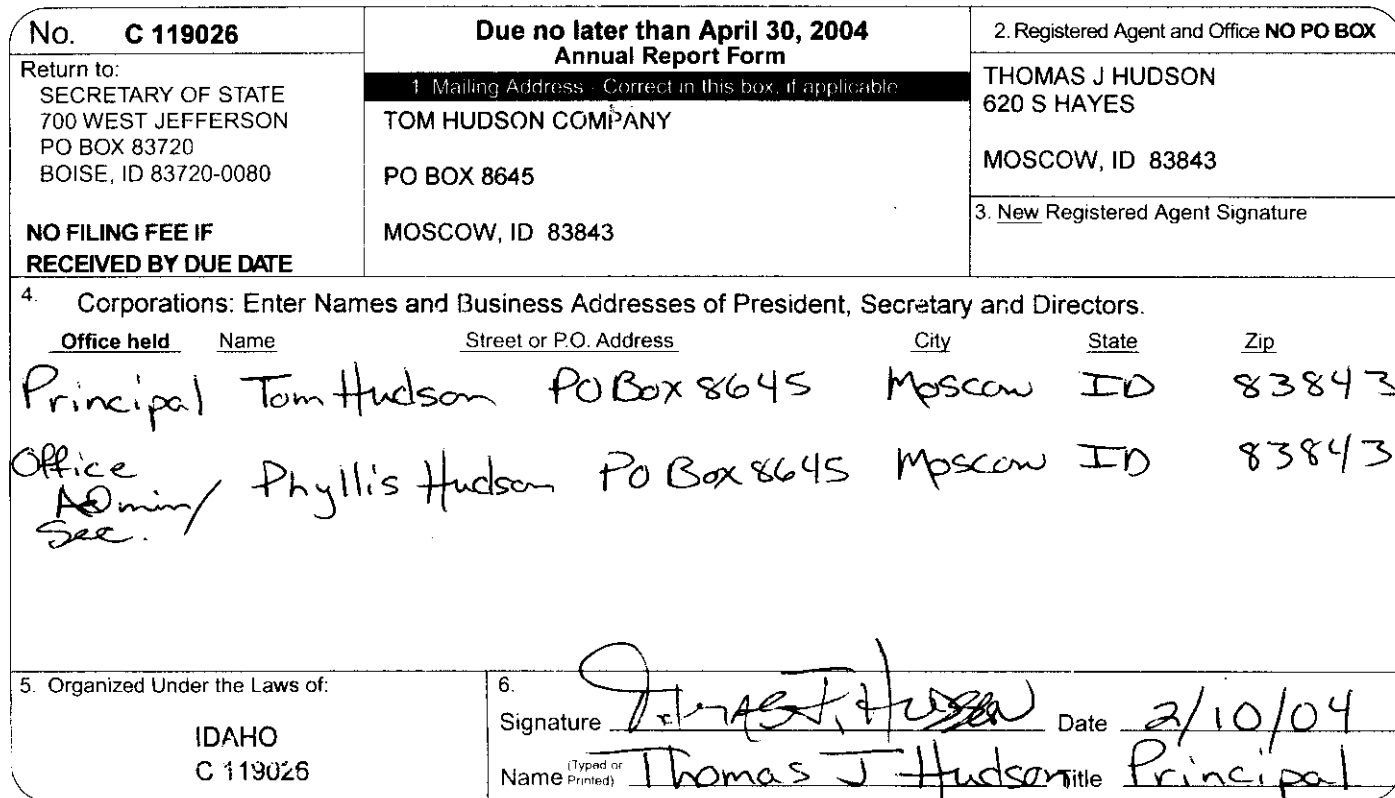 No. C 119026
Return to:
SECRETARY OF STATE
700 WEST JEFFERSON
PO BOX 83720
BOISE, ID 83720-0080
NO FILING FEE IF
RECEIVED BY DUE DATE
Due no later than April 30, 2004
Annual Report Form
1. Mailing Address - Correct in this box, if applicable
TOM HUDSON COMPANY
PO BOX 8645
MOSCOW, ID 83843
2. Registered Agent and Office NO PO BOX
THOMAS J HUDSON
620 S HAYES
MOSCOW, ID 83843
3. New Registered Agent Signature
4. Corporations: Enter Names and Business Addresses of President, Secretary and Directors.
Office held Name Street or P.O. Address City State Zip
Principal Tom Hudson PO Box 8645 Moscow ID 83843
Office
Admin/ Phyllis Hudson PO Box 8645 Moscow ID 83843
Sec.
5. Organized Under the Laws of:
IDAHO
C 119026
6.
Signature Thomas J. Hudson Date 2/10/04
Name (Typed or Printed) Thomas J Hudson Title Principal